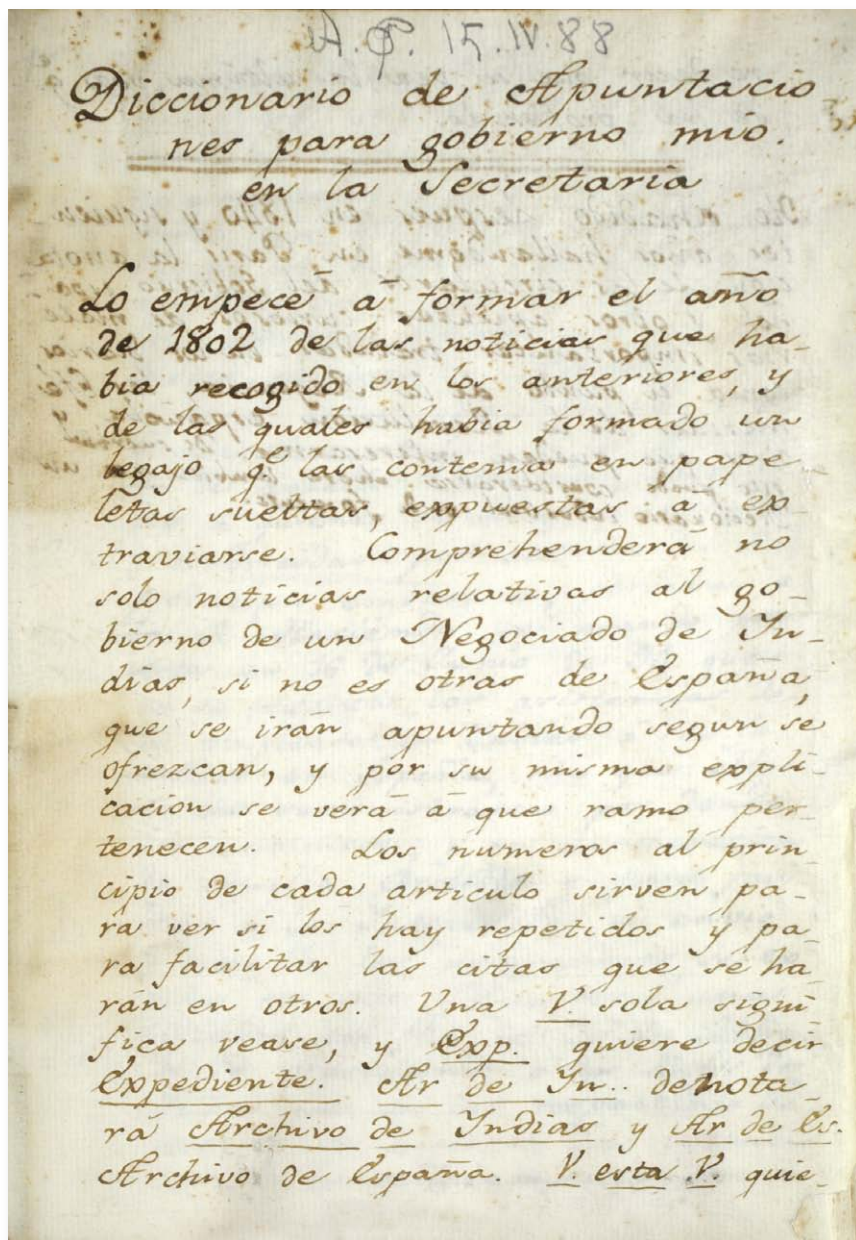 A. P. 15.IV.88
Diccionario de Apuntacio
nes para gobierno mio.
en la Secretaria
Lo empecé á formar el año
de 1802 de las noticias que ha-
bia recogido en los anteriores, y
de las quales habia formado un
legajo qe. las contenia en pape
letas sueltas, expuestas á ex-
traviarse. Comprehenderá no
solo noticias relativas al go-
bierno de un Negociado de In-
dias, si no es otras de España,
que se irán apuntando segun se
ofrezcan, y por su misma expli-
cacion se verá á que ramo per-
tenecen. Los numeros al prin-
cipio de cada articulo sirven pa-
ra ver si los hay repetidos y pa
ra facilitar las citas que se ha-
rán en otros. Una V. sola signi
fica vease, y Exp. quiere decir
Expediente. Ar de In.. denota
rá Archivo de Indias y Ar de Es.
Archivo de España. V. esta V. quie-